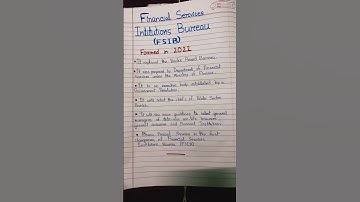 Financial Services
Intitutions Bureau
(FSIB)
Formed in 2022
• It replaced the Banks Board Bureau.
• It was proposed by Department of Financial
Services under the Ministry of Finance.
• It is an executive body established by a
Government Resolution.
• It will select the chiefs of Public Sector
Banks.
• It will also issue guidelines to select general
managers of state-run non-life insurers,
general insurance and Financial Institutions.
• Bhanu Pratap Sharma is the first
chairperson of Financial Services
Institutions Bureau (FSIB).